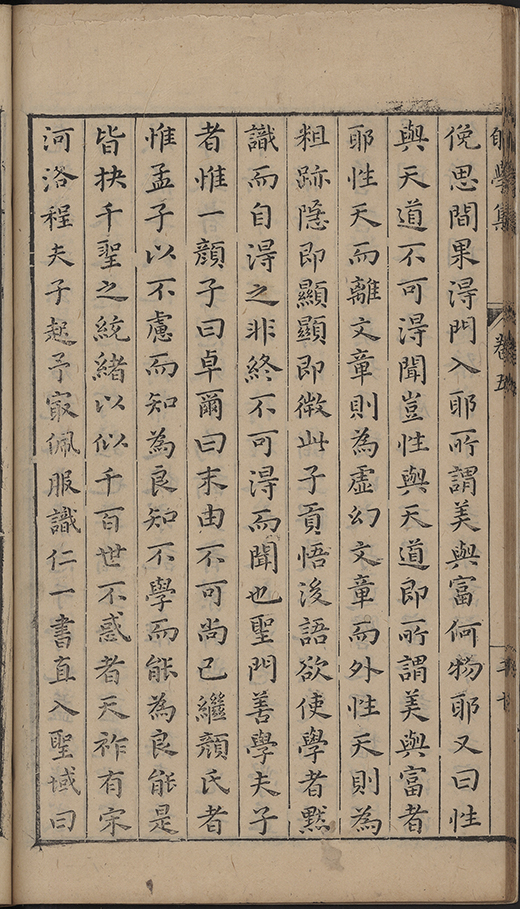 學集 卷五
俛思間果得門入耶所謂美與富何物耶又曰性
與天道不可得聞豈性與天道即所謂美與富者
耶性天而離文章則為虛幻文章而外性天則為
粗跡隱即顯顯即微此子貢悟後語欲使學者默
識而自得之非終不可得而聞也聖門善學夫子
者惟一顏子曰卓爾曰末由不可尚已繼顏氏者
惟孟子以不慮而知為良知不學而能為良能是
皆抉千聖之統緒以似千百世不惑者天祚有宋
河洛程夫子起予寂佩服識仁一書直入聖域曰